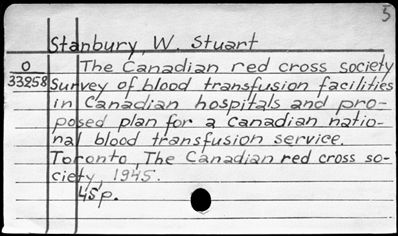 5
Stanbury, W. Stuart
O The Canadian red cross society
33258 Survey of blood transfusion facilities
in Canadian hospitals and pro-
posed plan for a Canadian natio-
nal blood transfusion service.
Toronto, The Canadian red cross so-
ciety, 1945.
45p.